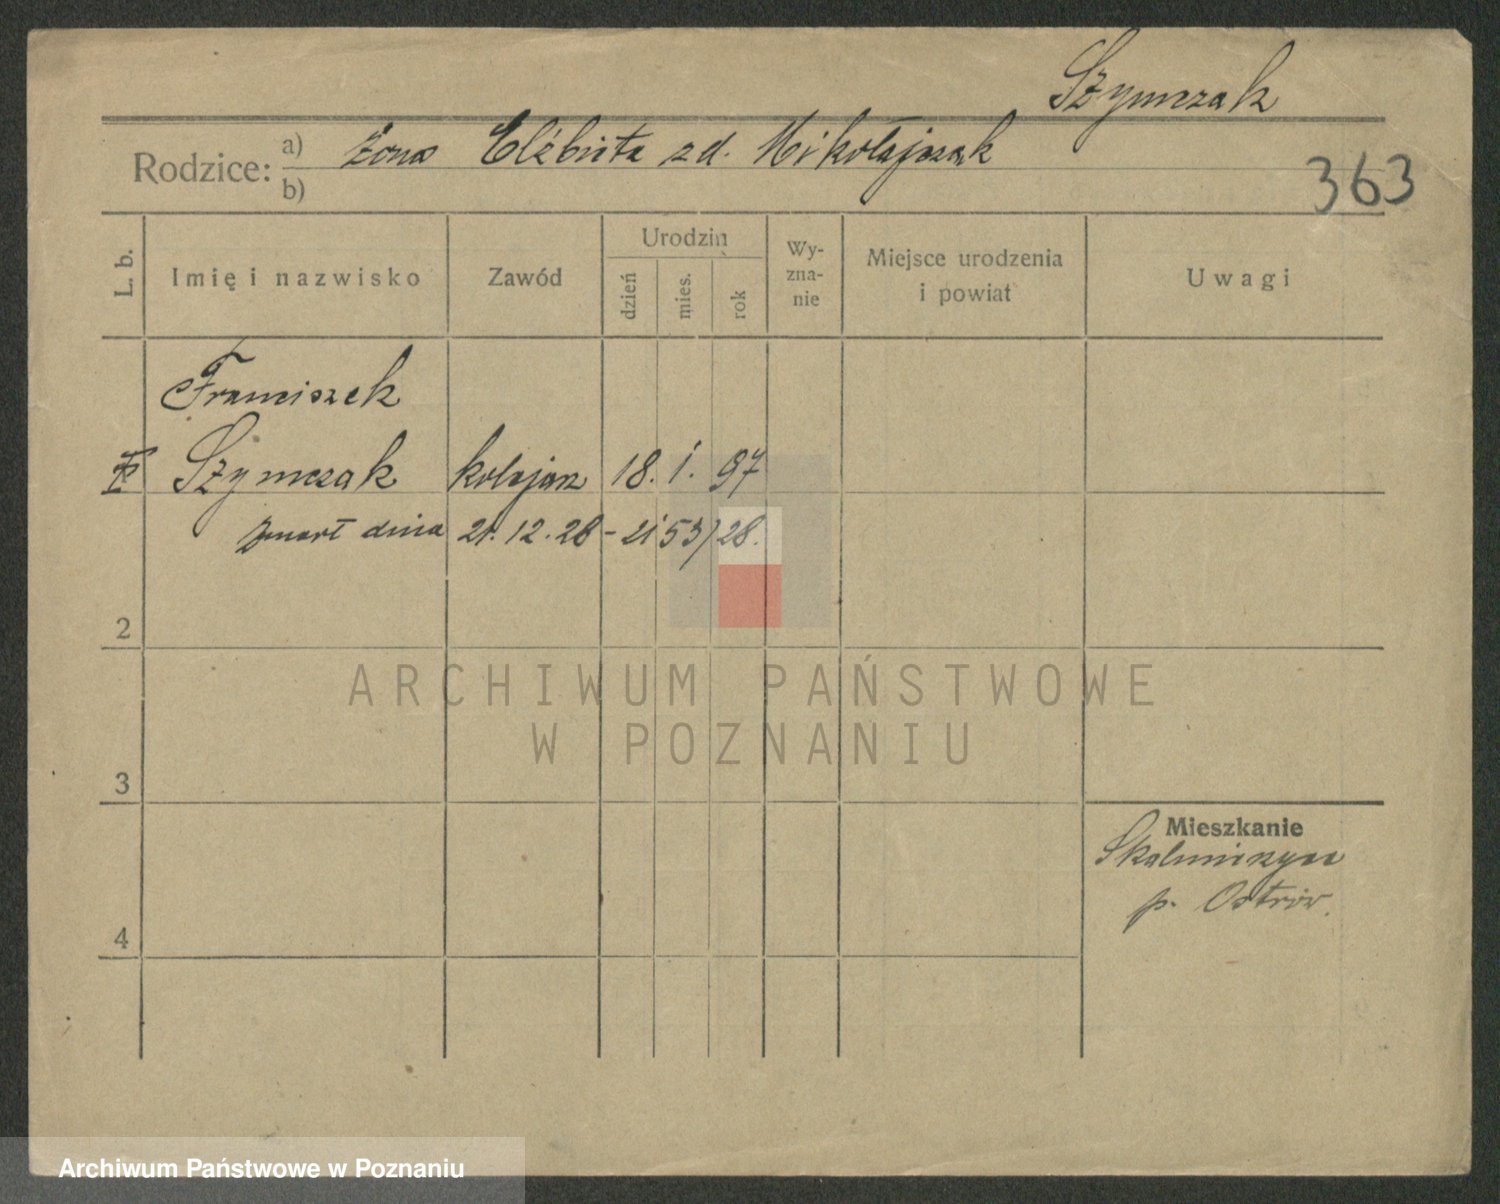 Szymczak
Rodzice: a) żona Elżbieta zd. Mikołajczak
b)
363
L. b.
Imię i nazwisko
Zawód
Urodzin
dzień
mies.
rok
Wy-
zna-
nie
Miejsce urodzenia
i powiat
Uwagi
Franciszek
Szymczak kolejarz 18. 1. 97
zmarł dnia 21. 12. 28 - 53/28.
2
ARCHIWUM PAŃSTWOWE
W POZNANIU
3
Mieszkanie
p. Ostrów.
4
Archiwum Państwowe w Poznaniu